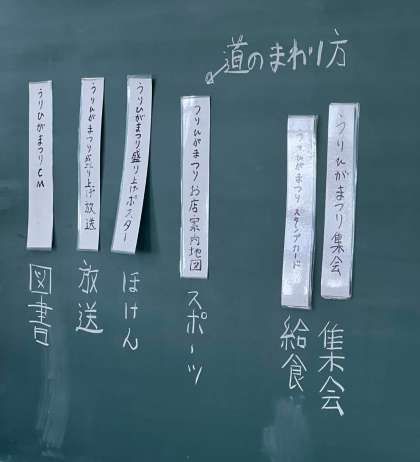 道のまわり方
うりひがまつり集会
集会
うりひがまつりスタンプカード
給食
うりひがまつりお店案内地図
スポーツ
うりひがまつり盛り上げポスター
ほけん
うりひがまつり盛り上げ放送
放送
うりひがまつりCM
図書